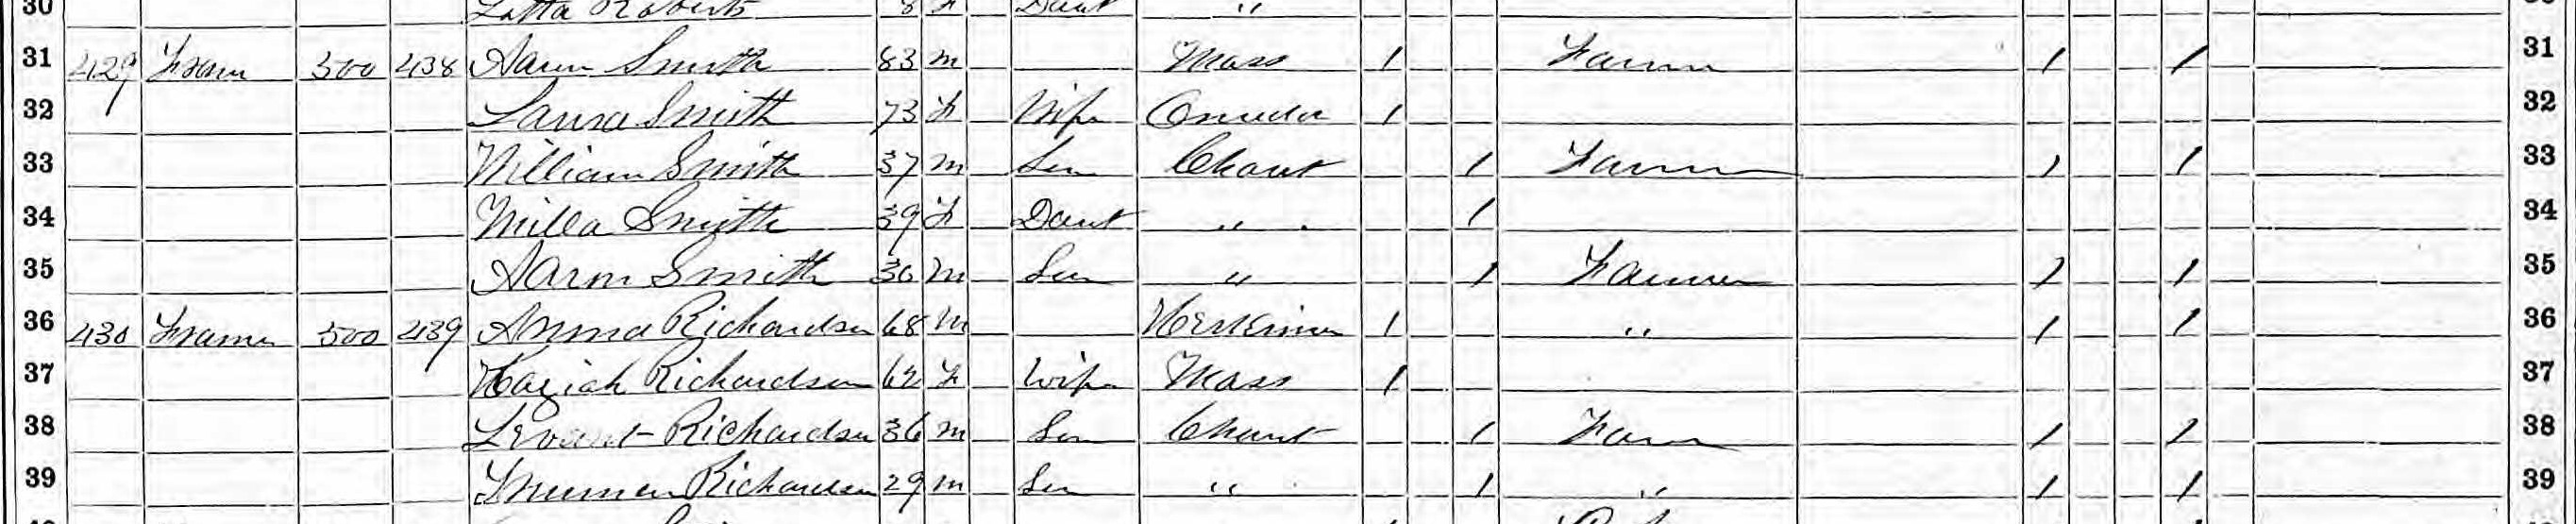 30 Roberts 8 f Daut "
31 429 Fram 500 438 Aaron Smith 83 m Mass 1 Farmer 1 1 31
32 Laura Smith 73 f Wife Oneida 1 32
33 William Smith 37 m Son Chaut 1 Farmer 1 1 33
34 Milla Smith 39 f Daut " 1 34
35 Aaron Smith 36 m Son " 1 Farmer 1 1 35
36 430 Frame 500 439 Richardson 68 m Herkimer 1 " 1 1 36
37 Kaziah Richardson 62 f Wife Mass 1 37
38 Levant Richardson 36 m Son Chaut 1 Farm 1 1 38
39 Truman Richardson 29 m Son " 1 " 1 1 39